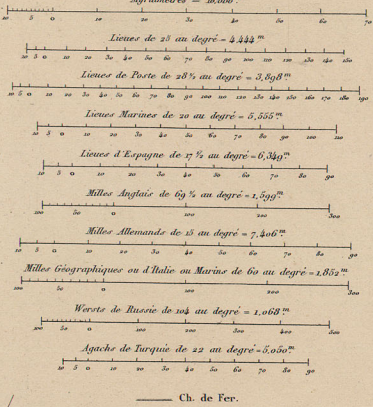 10 5 0 10 20 30 40 50 60 70
Lieues de 25 au degré = 4,444 m.
10 5 0 10 20 30 40 50 60 70 80 90 100 110 120 130 140 150
Lieues de Poste de 28 ½ au degré = 3,898 m.
10 5 0 10 20 30 40 50 60 70 80 90 100 110 120 130 140 150 160 170 180 190
Lieues Marines de 20 au degré = 5,555 m.
10 5 0 10 20 30 40 50 60 70 80 90 100 110 120
Lieues d'Espagne de 17 ½ au degré = 6,349 m.
10 5 0 10 20 30 40 50 60 70 80 90
Milles Anglais de 69 ½ au degré = 1,599 m.
100 50 0 100 200 300
Milles Allemands de 15 au degré = 7,406 m.
10 5 0 10 20 30 40 50 60 70 80 90
Milles Géographiques ou d'Italie ou Marins de 60 au degré = 1,852 m.
100 50 0 100 200 300
Wersts de Russie de 104 au degré = 1,068 m.
100 50 0 100 200 300 400 500
Agachs de Turquie de 22 au degré = 5,050 m.
10 5 0 10 20 30 40 50 60 70 80 90
Ch. de Fer.